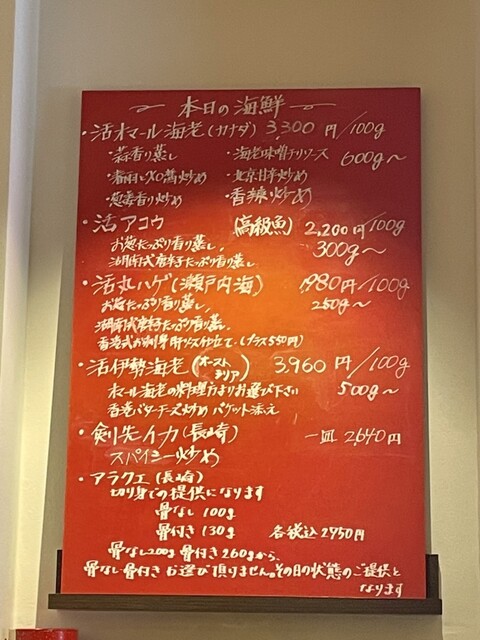 本日の海鮮
・活オマール海老(カナダ) 3,300円/100g
・蒜香り蒸し ・海老味噌チリソース 600g〜
・XO醤炒め ・北京甘辛炒め
・葱姜香り炒め ・香辣炒め
・活アコウ (高級魚) 2,200円/100g
お葱たっぷり香り蒸し、 300g〜
湖南式唐辛子たっぷり香り蒸し
・活丸ハゲ(瀬戸内海) 1,980円/100g
お葱たっぷり香り蒸し、 250g〜
湖南式唐辛子たっぷり香り蒸し、
香港式お刺身肝ソース仕立て(プラス550円)
・活伊勢海老(オーストラリア) 3,960円/100g
オマール海老の料理方よりお選び下さい 500g〜
香港バターチーズ炒めバゲット添え
・剣先イカ(長崎) 一皿 2,640円
スパイシー炒め
・アラクエ(長崎)
切り身での提供になります
骨なし 100g
骨付き 130g 各税込2950円
骨なし200g 骨付き260gから、
骨なし骨付きお選び頂けません。その日の状態のご提供と
なります